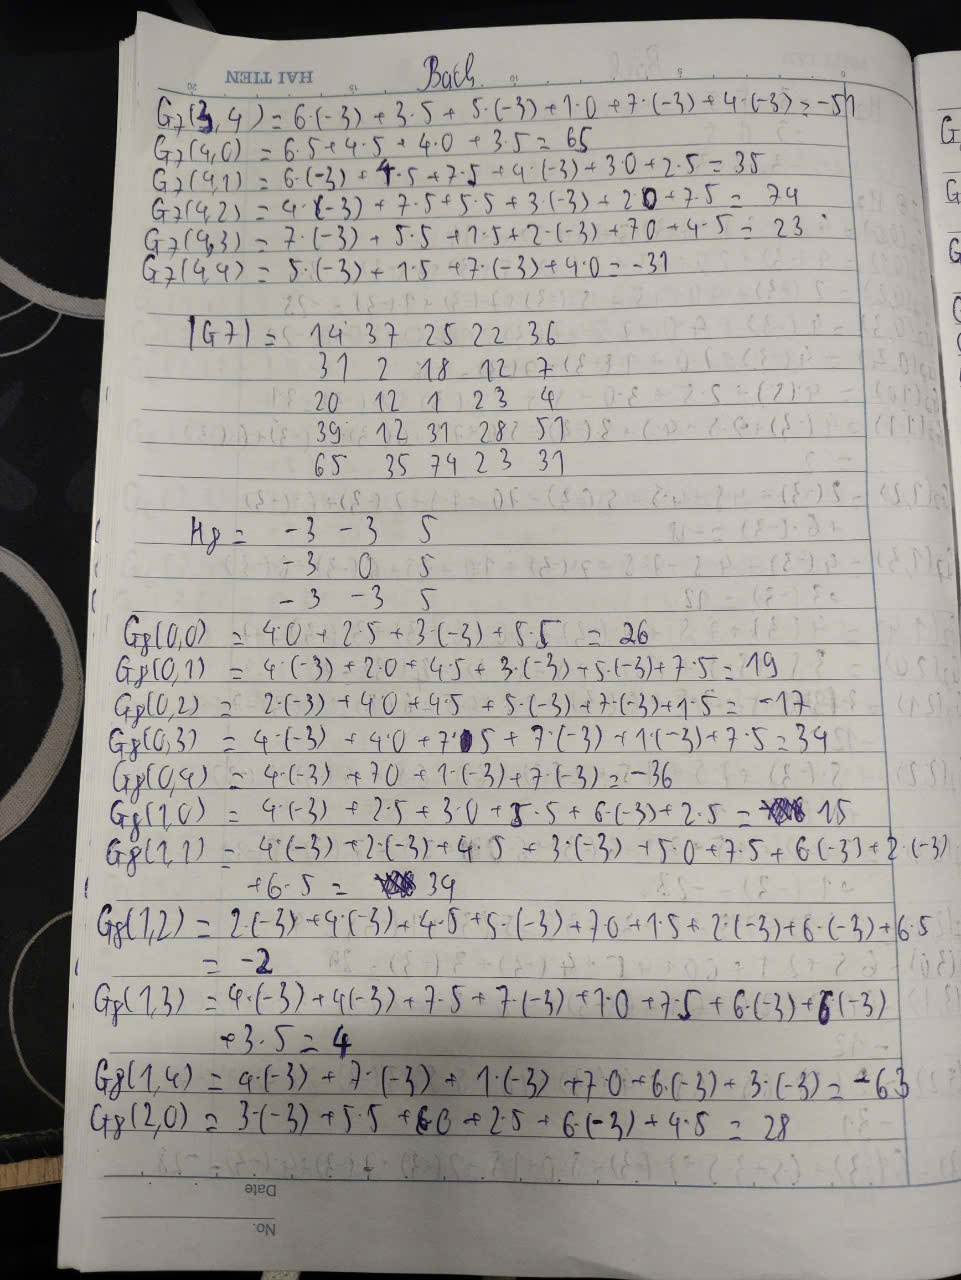 HAI TIEN
20 15 10 5 0
Bách
G7(3,4) = 6·(-3) + 3·5 + 5·(-3) + 1·0 + 7·(-3) + 4·(-3) = -51
G7(4,0) = 6·5 + 4·5 + 4·0 + 3·5 = 65
G7(4,1) = 6·(-3) + 4·5 + 7·5 + 4·(-3) + 3·0 + 2·5 = 35
G7(4,2) = 4·(-3) + 7·5 + 5·5 + 3·(-3) + 2·0 + 7·5 = 74
G7(4,3) = 7·(-3) + 5·5 + 1·5 + 2·(-3) + 7·0 + 4·5 = 23
G7(4,4) = 5·(-3) + 1·5 + 7·(-3) + 4·0 = -31
|G7| = 14 37 25 22 36
31 2 18 12 7
20 12 1 23 4
39 12 31 28 51
65 35 74 23 31
H8 = -3 -3 5
-3 0 5
-3 -3 5
G8(0,0) = 4·0 + 2·5 + 3·(-3) + 5·5 = 26
G8(0,1) = 4·(-3) + 2·0 + 4·5 + 3·(-3) + 5·(-3) + 7·5 = 19
G8(0,2) = 2·(-3) + 4·0 + 4·5 + 5·(-3) + 7·(-3) + 1·5 = -17
G8(0,3) = 4·(-3) + 4·0 + 7·5 + 7·(-3) + 1·(-3) + 7·5 = 34
G8(0,4) = 4·(-3) + 7·0 + 1·(-3) + 7·(-3) = -36
G8(1,0) = 4·(-3) + 2·5 + 3·0 + 5·5 + 6·(-3) + 2·5 = 15
G8(1,1) = 4·(-3) + 2·(-3) + 4·5 + 3·(-3) + 5·0 + 7·5 + 6·(-3) + 2·(-3)
+6·5 = 34
G8(1,2) = 2·(-3) + 4·(-3) + 4·5 + 5·(-3) + 7·0 + 1·5 + 2·(-3) + 6·(-3) + 6·5
= -2
G8(1,3) = 4·(-3) + 4(-3) + 7·5 + 7·(-3) + 1·0 + 7·5 + 6·(-3) + 6·(-3)
+3·5 = 4
G8(1,4) = 4·(-3) + 7·(-3) + 1·(-3) + 7·0 + 6·(-3) + 3·(-3) = -63
G8(2,0) = 3·(-3) + 5·5 + 6·0 + 2·5 + 6·(-3) + 4·5 = 28
Date
No.